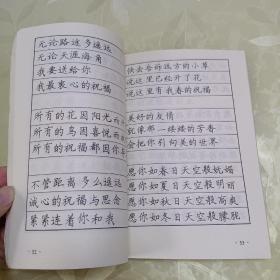 无论路途多遥远
无论天涯海角
我要送给你
我最衷心的祝福
所有的花因阳光而
所有的鸟因喜悦而
所有的祝福都因你
不管距离多么遥远
诚心的祝福与思念
紧紧连着你和我
· 52 ·
快去告诉远方的小草
说这里已经开了花
说这里有我春的祝福
美好的友情
就像那一缕缕的芳香
会把你引向美的世界
愿你如春日天空般妩媚
愿你如夏日天空般明丽
愿你如秋日天空般高爽
愿你如冬日天空般朦胧
· 53 ·